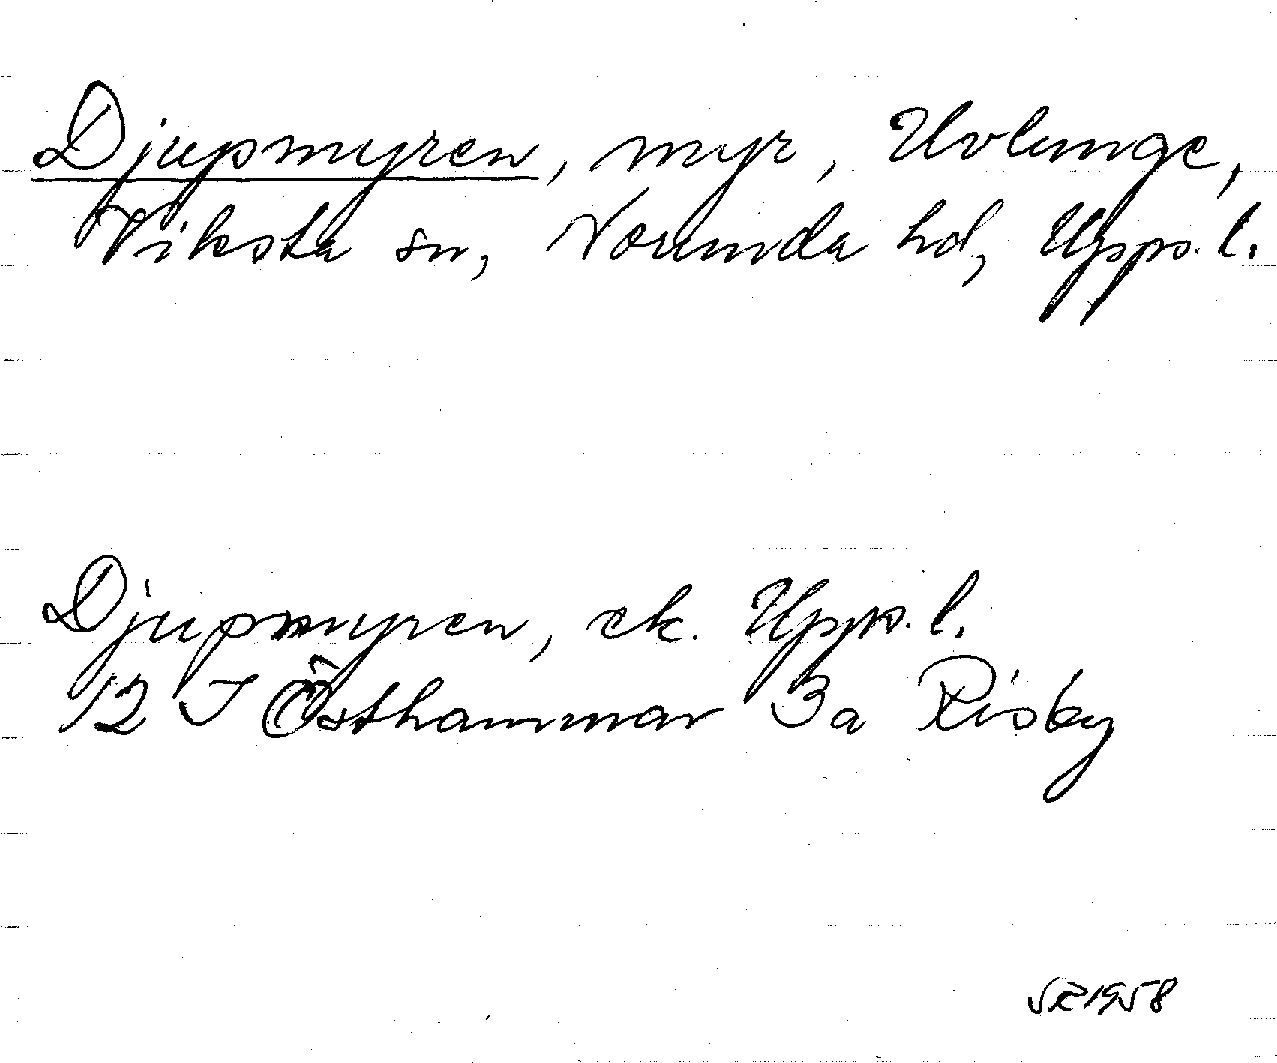 Djupmyren, myr, Uvlunge,
Viksta sn, Norunda hd, Upps. l.
Djupmyren, ek. Upps. l.
12 I Östhammar 3a Risby
1958